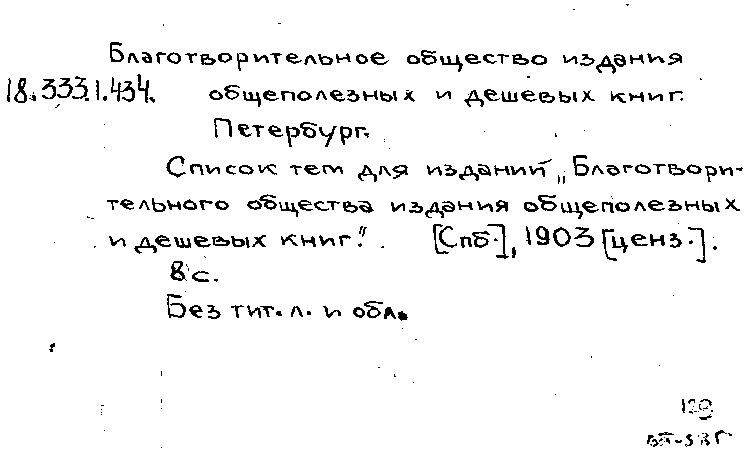 Благотворительное общество издания
18.333.1.434. общеполезных и дешевых книг.
Петербург.
Список тем для изданий „Благотвори-
тельного общества издания общеполезных
и дешевых книг." [Спб.], 1903 [ценз.].
8 с.
Без тит. л. и обл.
120